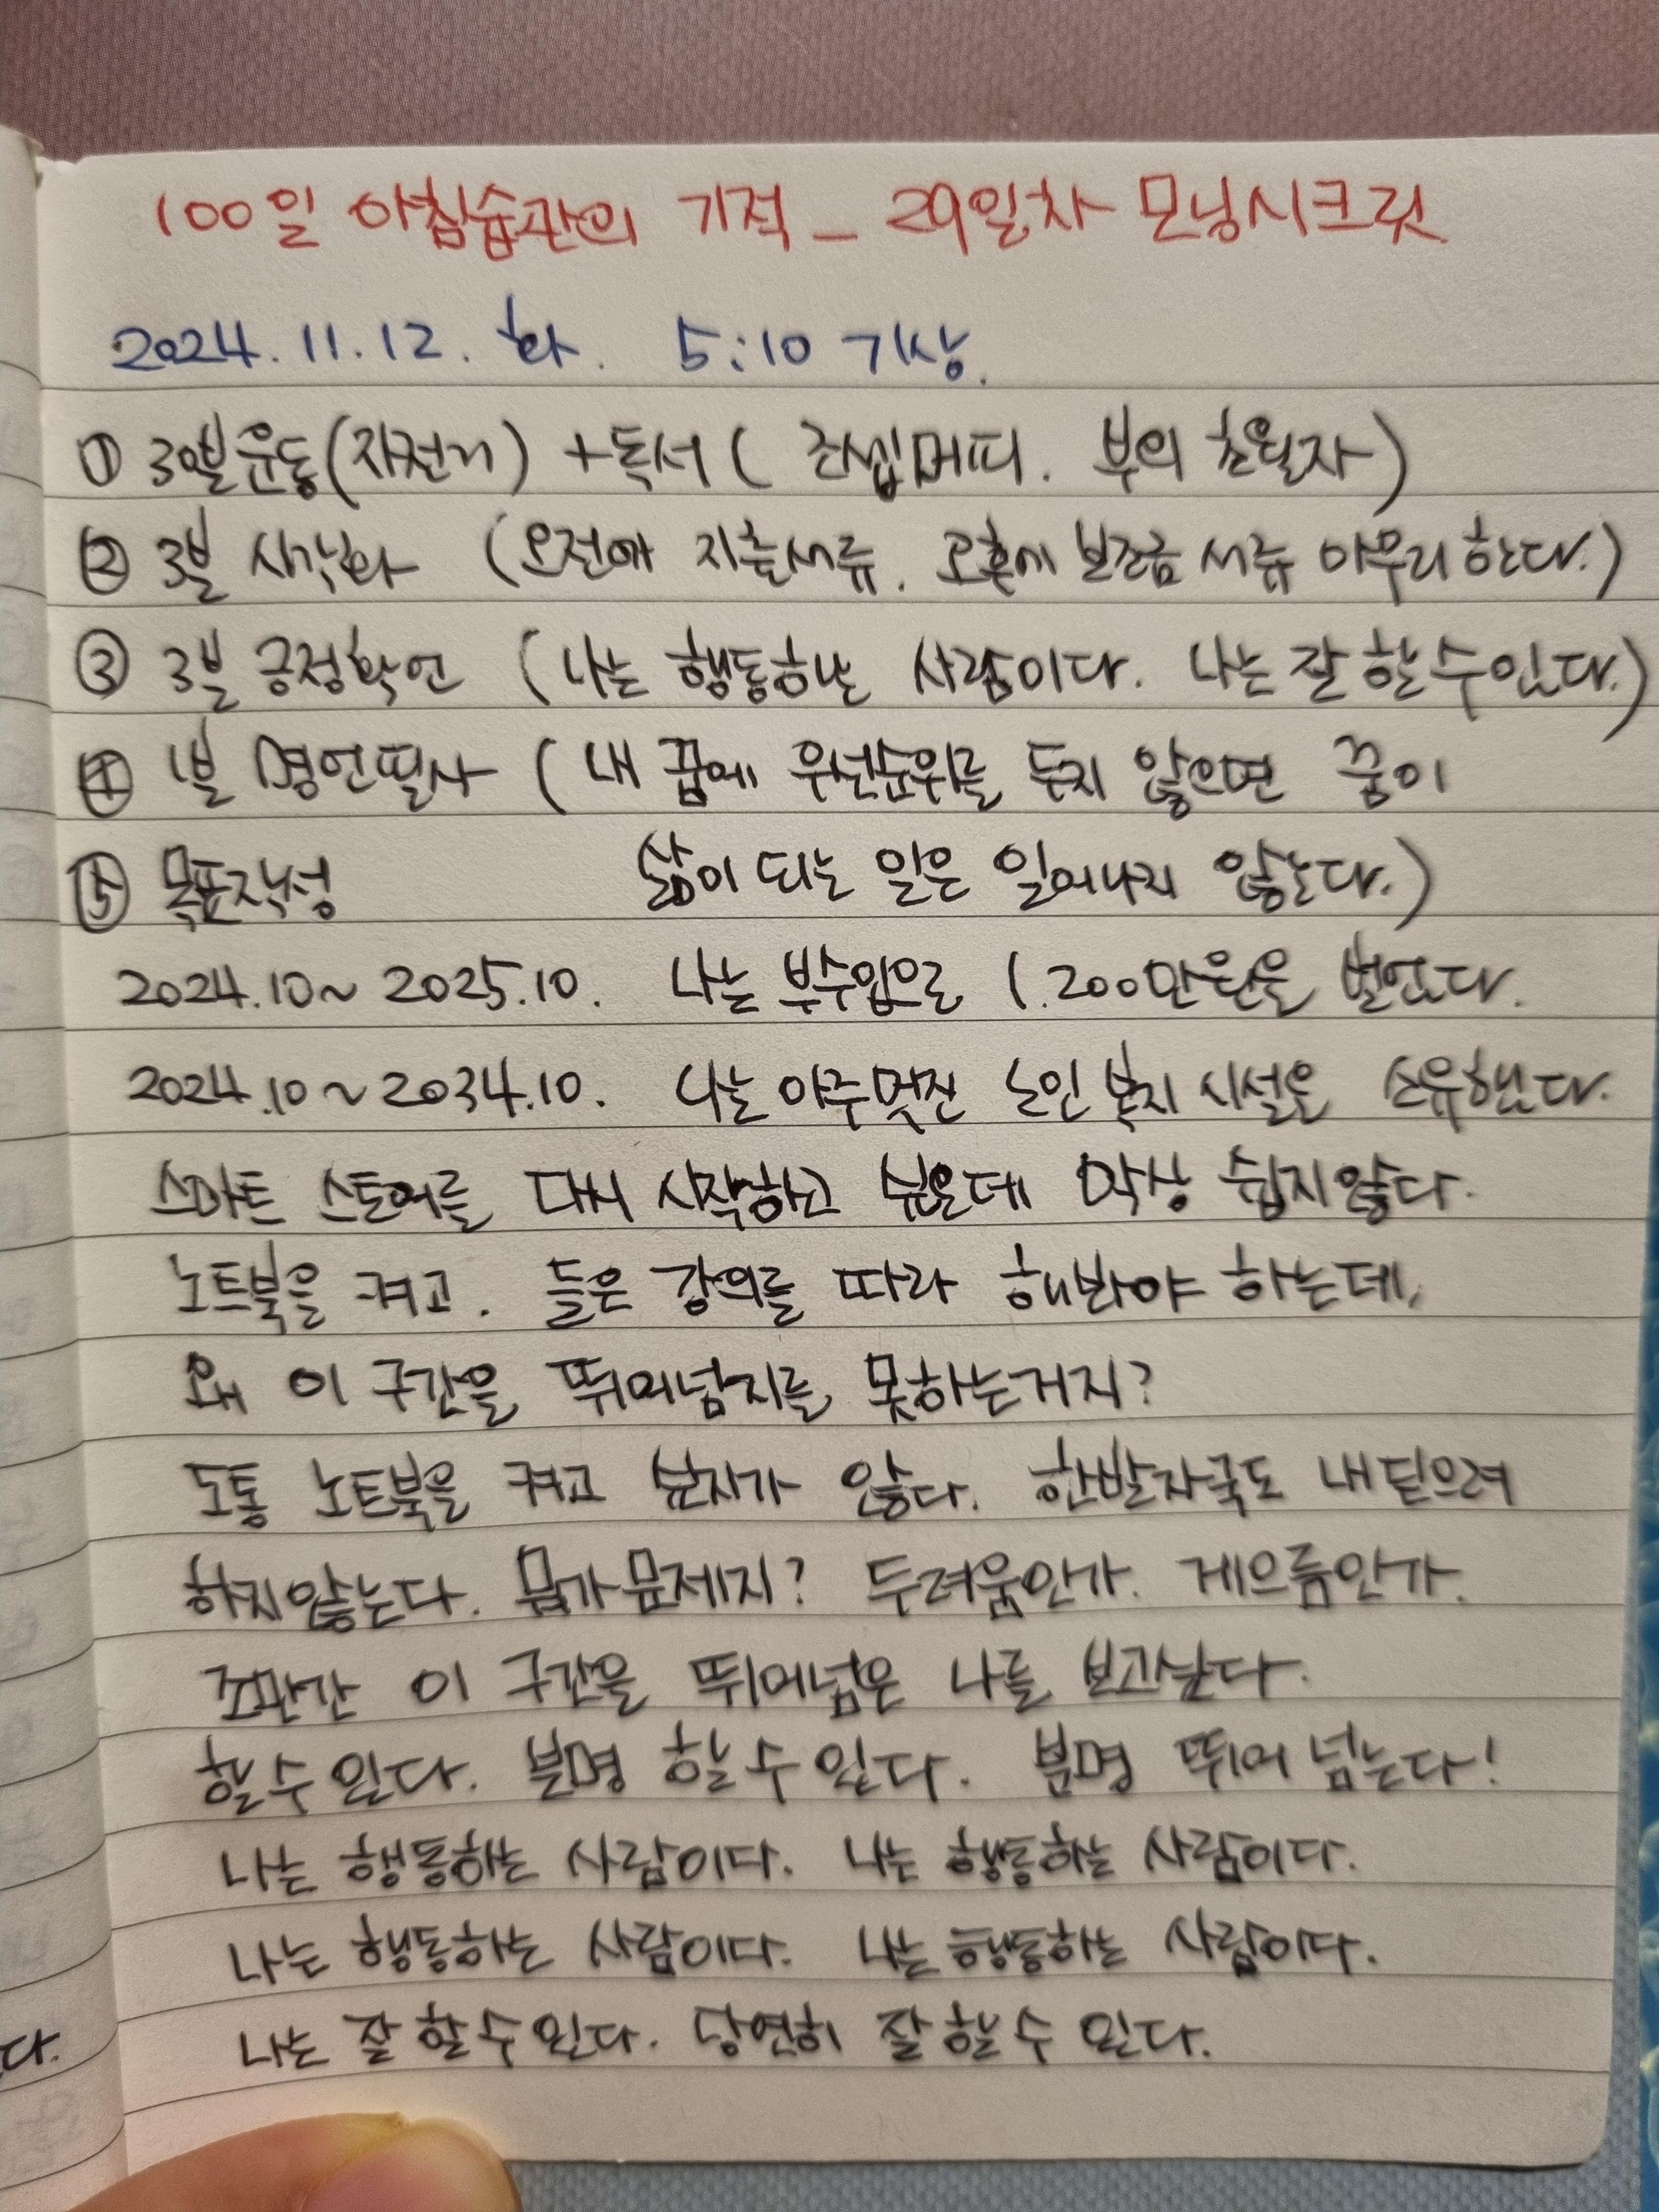 100일 아침습관의 기적 _ 29일차 모닝시크릿
2024. 11. 12. 화. 5:10 기상.
① 30분운동(자전거) + 독서 ( 조셉머피. 부의 초월자)
② 3분 시각화 (오전에 지출서류. 오후에 보조금 서류 마무리 한다.)
③ 3분 긍정확언 (나는 행동하는 사람이다. 나는 잘 할 수 있다.)
④ 1분 명언필사 (내 꿈에 우선순위를 두지 않으면 꿈이
⑤ 목표작성 삶이 되는 일은 일어나지 않는다.)
2024.10~2025.10. 나는 부수입으로 1.200만원을 벌었다.
2024.10~2034.10. 나는 아주 멋진 노인 복지 시설을 소유했다.
스마트 스토어를 다시 시작하고 싶은데 막상 쉽지않다.
노트북을 켜고. 들은 강의를 따라 해봐야 하는데,
왜 이 구간을 뛰어넘지를 못하는거지?
도통 노트북을 켜고 싶지가 않다. 한발자국도 내딛으려
하지않는다. 뭐가 문제지? 두려움인가. 게으름인가.
조만간 이 구간을 뛰어넘은 나를 보고싶다.
할 수 있다. 분명 할 수 있다. 분명 뛰어 넘는다!
나는 행동하는 사람이다. 나는 행동하는 사람이다.
나는 행동하는 사람이다. 나는 행동하는 사람이다.
나는 잘 할 수 있다. 당연히 잘 할 수 있다.
다.